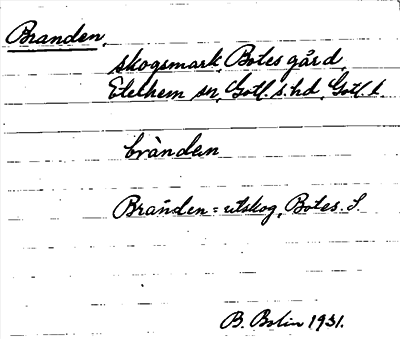 Branden,
skogsmark, Botes gård,
Etelhem sn, Gotl. s. hd, Gotl. l.
brànden
Branden = utskog, Botes. S.
B. Bolin 1931.